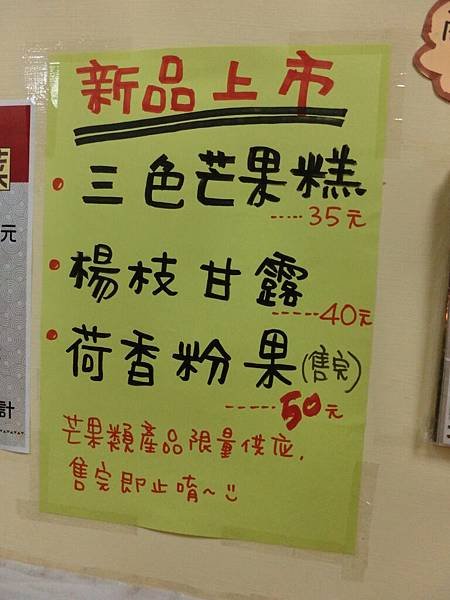 新品上市
•三色芒果糕
-----35元
•楊枝甘露
-----40元
•荷香粉果(售完)
------50元
芒果類產品限量供应,
售完即止唷~☺
菜
元
計